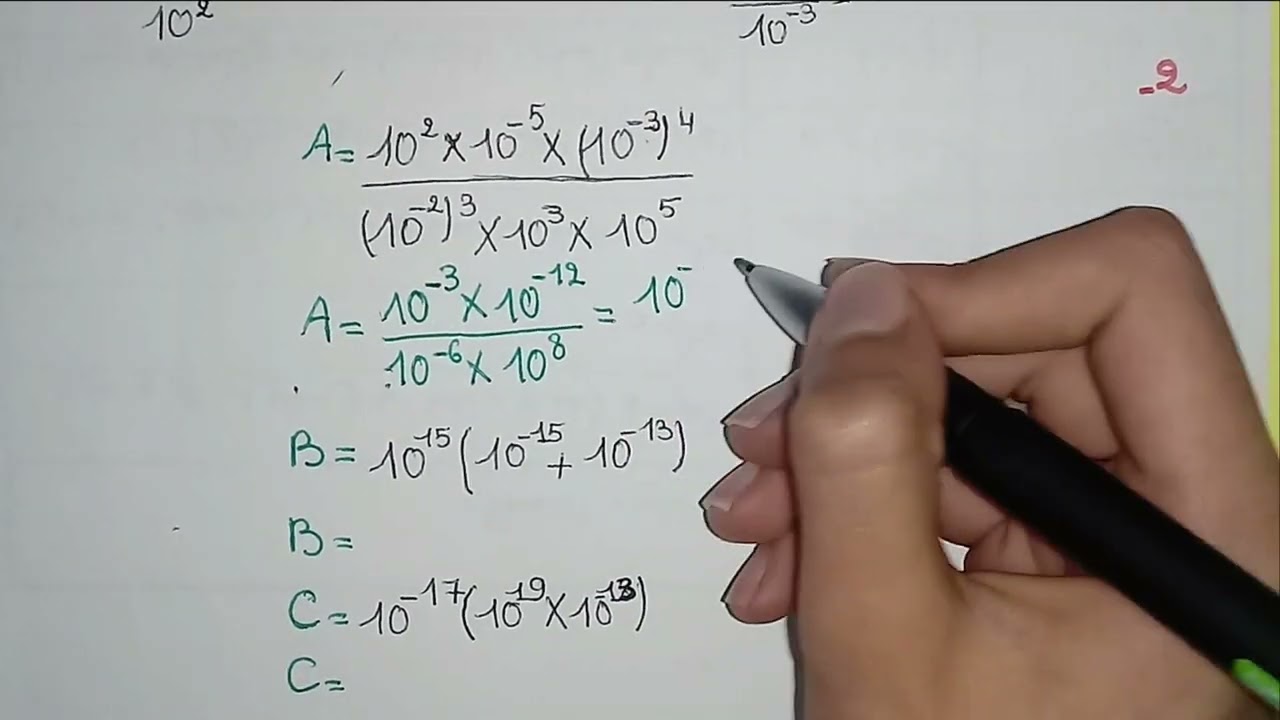 10² 10⁻³
-2
A = 10² × 10⁻⁵ × (10⁻³)⁴
(10⁻²)³ × 10³ × 10⁵
A = 10⁻³ × 10⁻¹² = 10⁻
10⁻⁶ × 10⁸
B = 10⁻¹⁵ (10⁻¹⁵ + 10⁻¹³)
B =
C = 10⁻¹⁷ (10⁻¹⁹ × 10⁻¹³)
C =